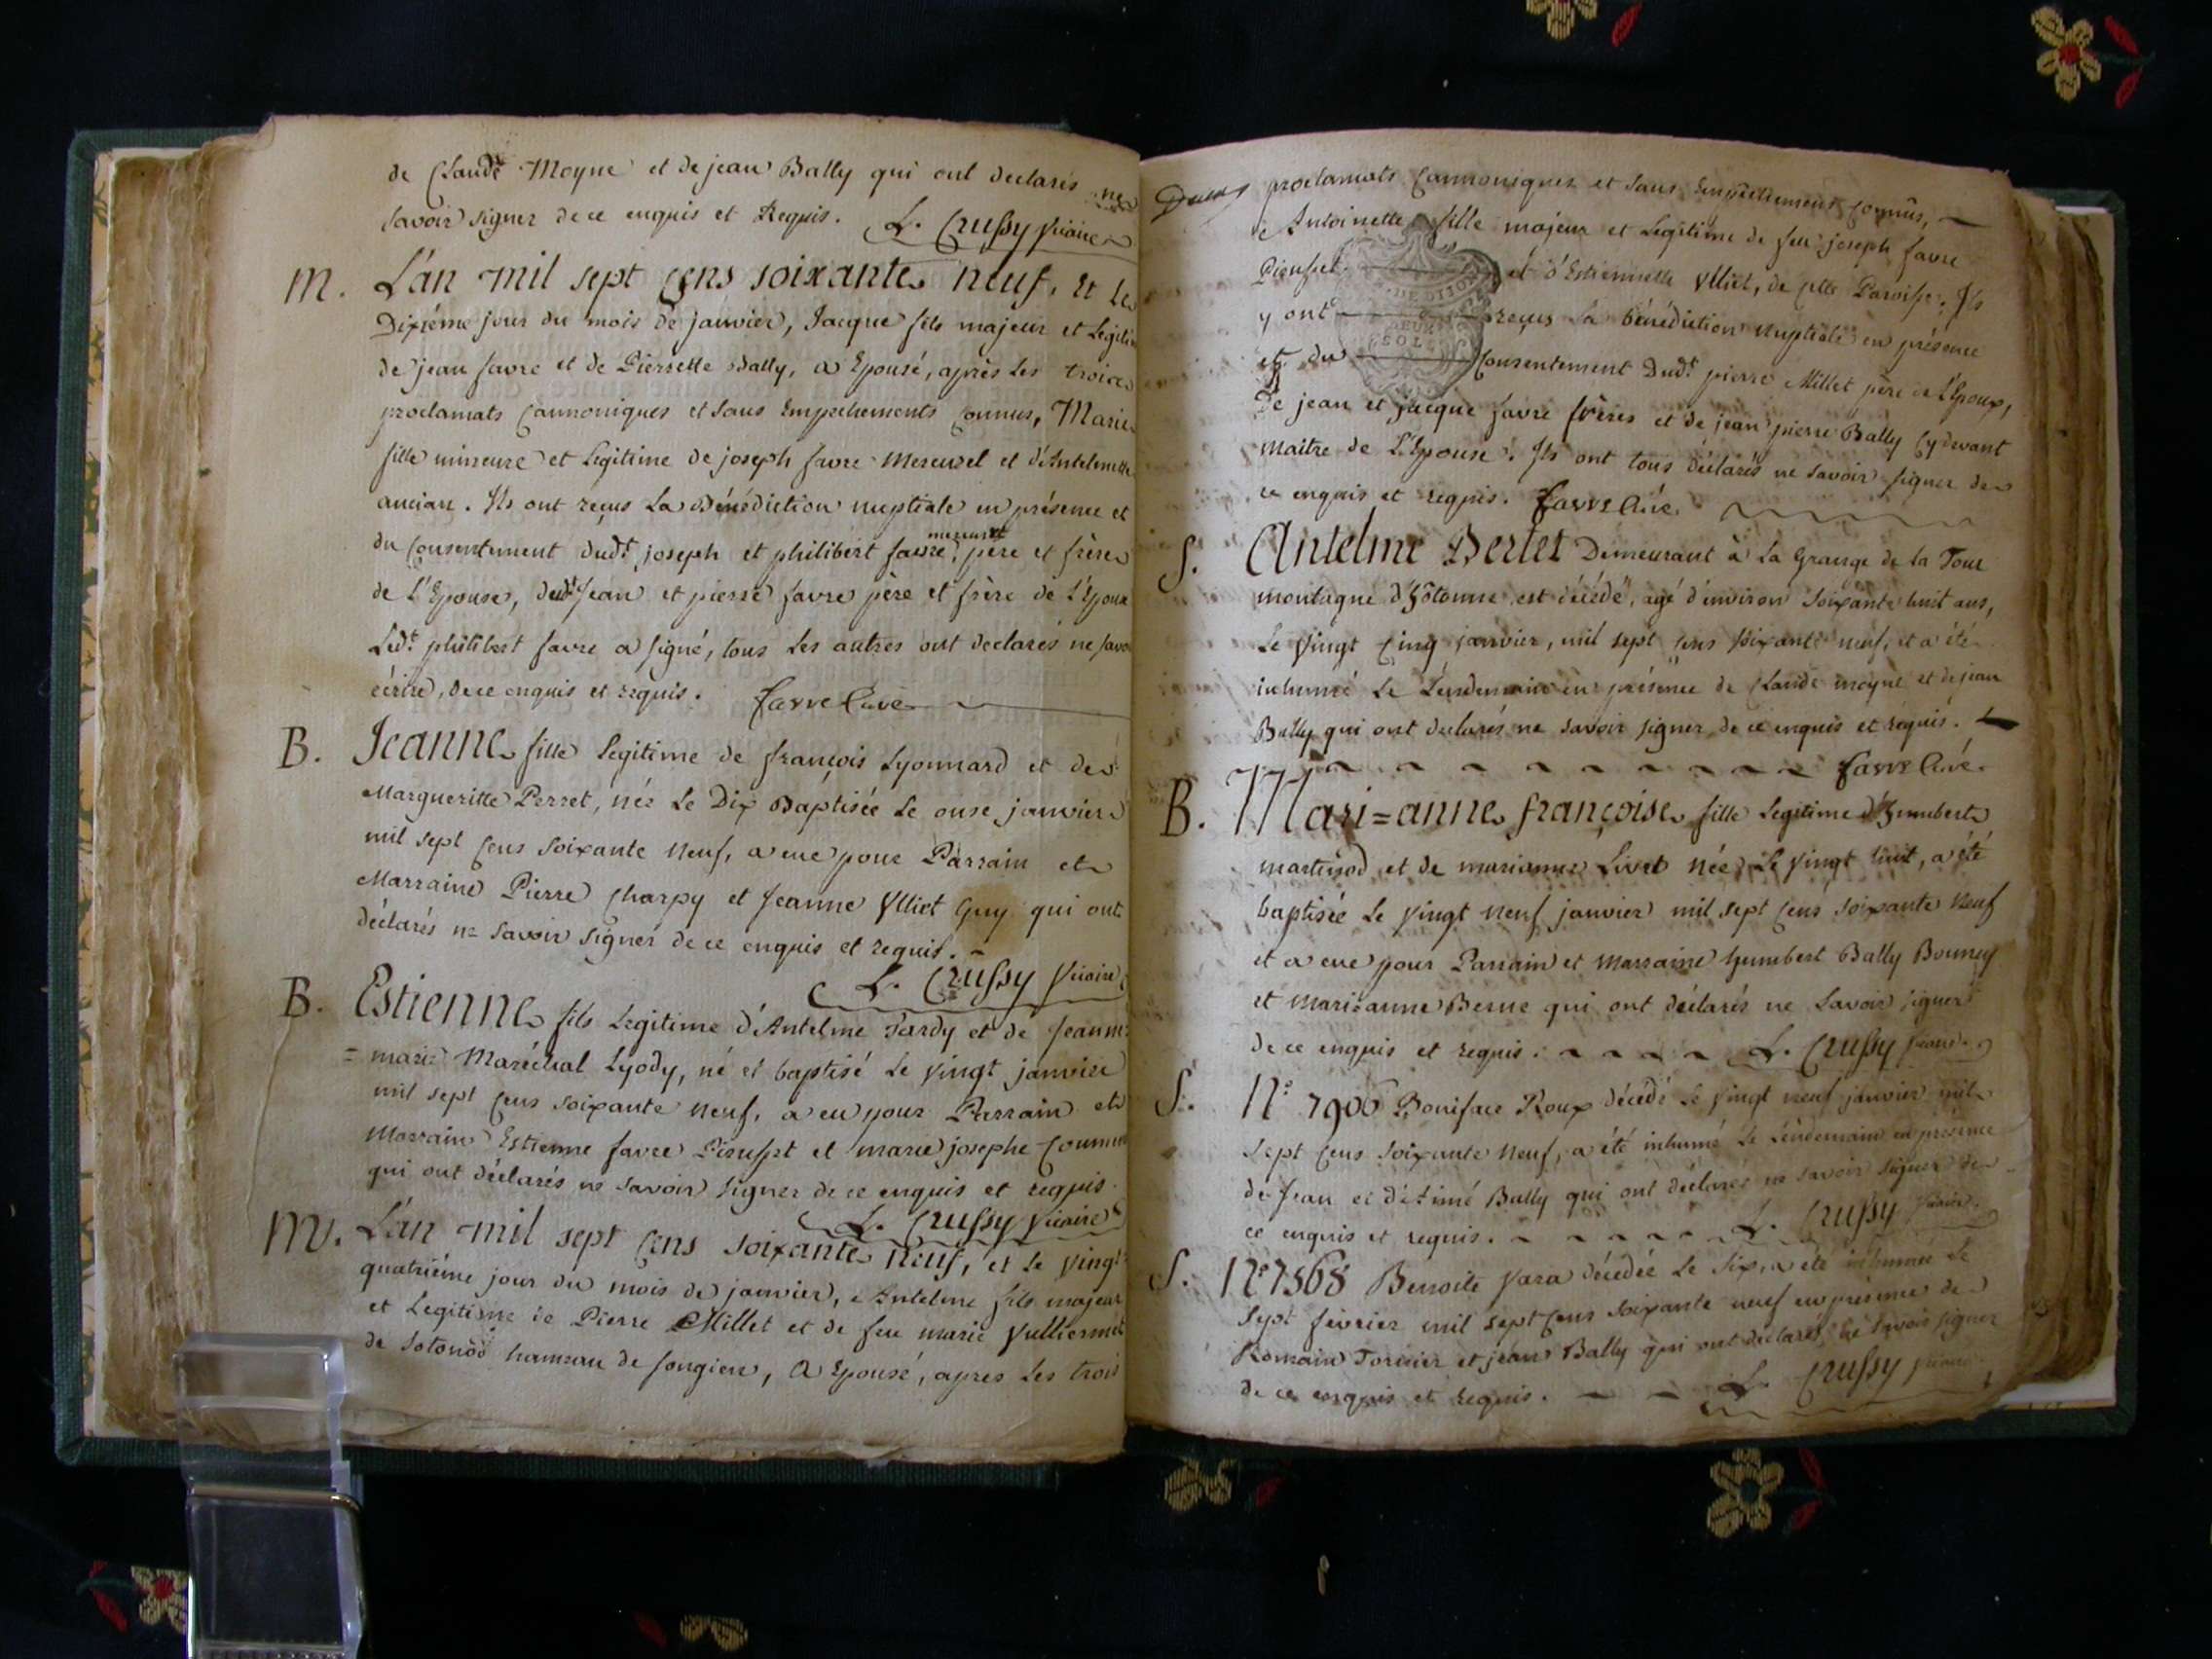 de Claude Moyne et de jean Bally qui ont declarés ne
savoir signer de ce enquis et Requis. L. Crussy Vicaire
M. L'an mil sept cens soixante neuf, et le
Dixiéme jour du mois de janvier, Jacque fils majeur et Legiti
de jean favre et de Pierrette Bally, a Epousé, après les trois
proclamats Cannoniques et sans Empechements connus, Marie
fille mineure et Legitime de joseph favre Mercuret et d'Antelmette
ancian. Ils ont reçus La Bénédiction nuptiale en présence et
du Consentement dud.t joseph et philibert favre mercuret, père et frère
de L'Epouse, dud.t Jean et pierre favre père et frère de L'Epoux
Led.t philibert favre a signé, tous les autres ont declarés ne savo
écrire, de ce enquis et requis. favre Curé
B. Jeanne fille Legitime de françois Lyonnard et de
Margueritte Perret, née Le Dix Baptisée Le onse janvier
mil sept cens soixante neuf, a eue pour Parrain et
Marraine Pierre Charpy et Jeanne Ylliet Guy qui ont
déclarés ne savoir signer de ce enquis et requis.
L. Crussy Vicaire
B. Estienne fils Legitime d'Antelme Tardy et de Jeanne
= marie Maréchal Lyody, né et baptisé Le vingt janvier
mil sept cens soixante neuf, a eu pour Parrain et
Marraine Estienne favre Pieufet et marie josephe
qui ont déclarés ne savoir signer de ce enquis et requis.
L. Crussy Vicaire
M. L'an mil sept cens soixante neuf, et le vingt
quatriéme jour du mois de janvier, Antelme fils majeur
et Legitime de Pierre Millet et de feu marie Vulliermet
de Sotonod hameau de Songieu, A Epousé, après les trois
proclamats Cannoniques et sans Empechemens connus,
Antoinette fille majeur et Legitime de feu joseph favre
Pieufet et d'Estiennette Ylliet, de cette Paroisse. Ils
y ont reçus La bénédiction nuptiale en présence
et du Consentement Dud.t pierre Millet père de L'Epoux,
De jean et jacque favre frères et de jean pierre Bally Cydevant
maitre de L'Epouse. Ils ont tous déclarés ne savoir signer de
ce enquis et requis. favre Curé.
S. Antelme Bertet Demeurant à La Grange de la Tour
montagne d'hotonne est décédé, agé d'environ soixante huit ans,
Le vingt cinq janvier, mil sept cens soixante neuf, et a été
inhumé Le Lendemain en présence de Claude moyne et de jean
Bally qui ont declarés ne savoir signer de ce enquis et requis.
favre Curé.
B. Mari=anne françoise fille Legitime d'humbert
martinod et de marianne Livet née Le vingt huit, a été
baptisée Le vingt neuf janvier mil sept cens soixante neuf
et a eue pour Parrain et Marraine humbert Bally Bouney
et mari=anne Berne qui ont déclarés ne savoir signer
de ce enquis et requis. L. Crussy Vicaire
S. N.° 7906 Boniface Roux décédé Le vingt neuf janvier mil
sept cens soixante neuf, a été inhumé Le Lendemain en présence
de Jean et d'Aimé Bally qui ont déclarés ne savoir signer de
ce enquis et requis. L. Crussy Vicaire.
S. N.° 7868 Benoite Vara décédée Le six, a été inhumée Le
Sept février mil sept cens soixante neuf en présence de
Romain Tornier et jean Bally qui ont declarés ne savoir signer
de ce enquis et requis. L. Crussy Vicaire